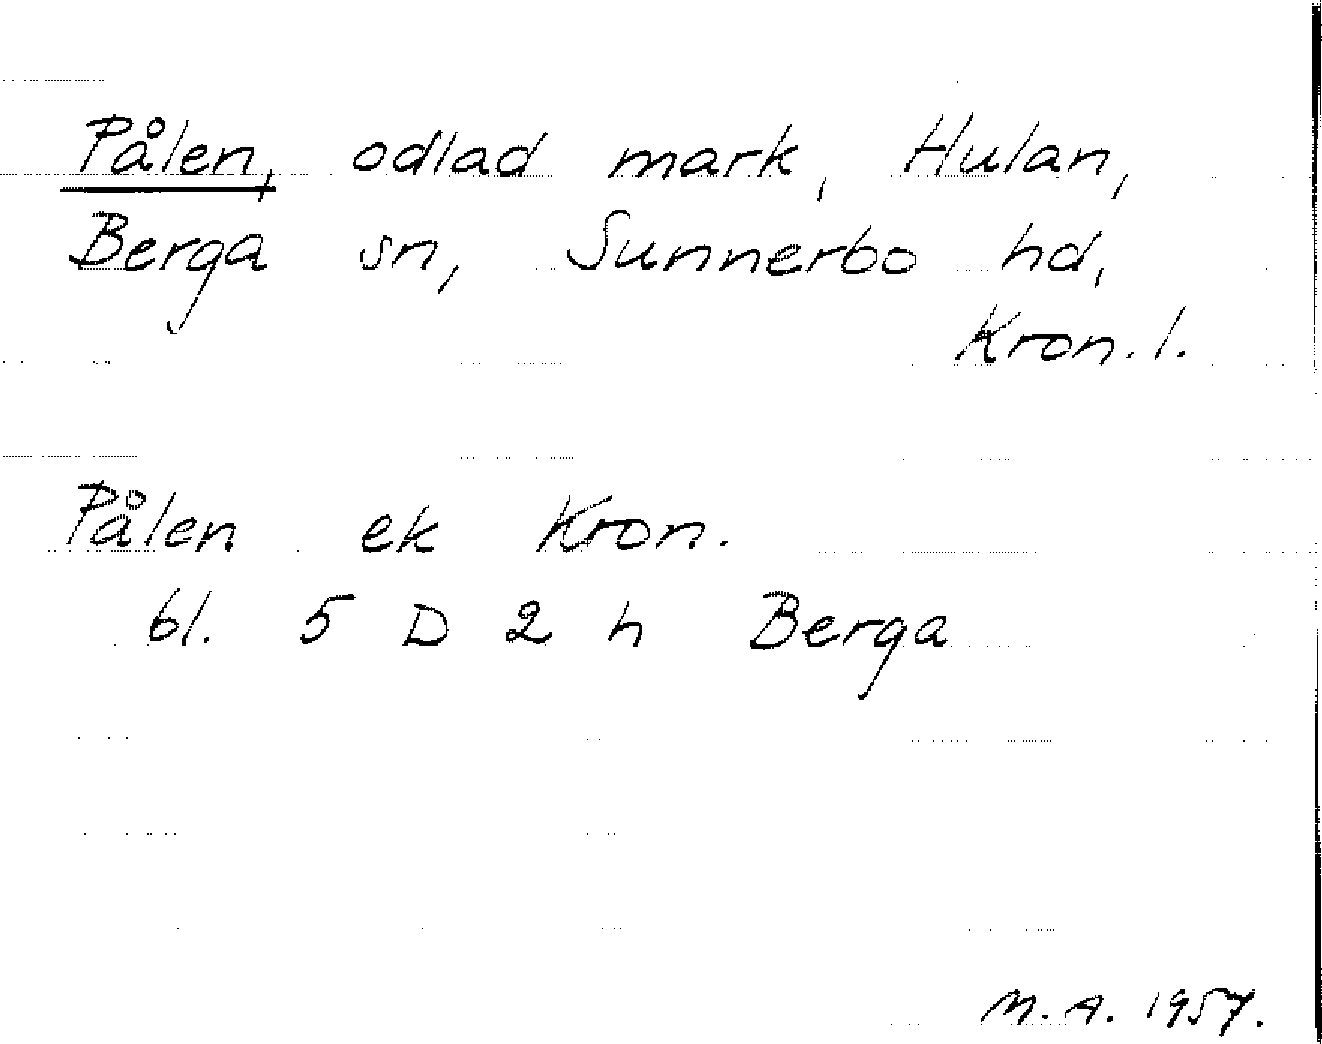 Pålen, odlad mark, Hulan,
Berga sn, Sunnerbo hd,
Kron. l.
Pålen ek Kron.
bl. 5 D 2 h Berga
M. A. 1957.